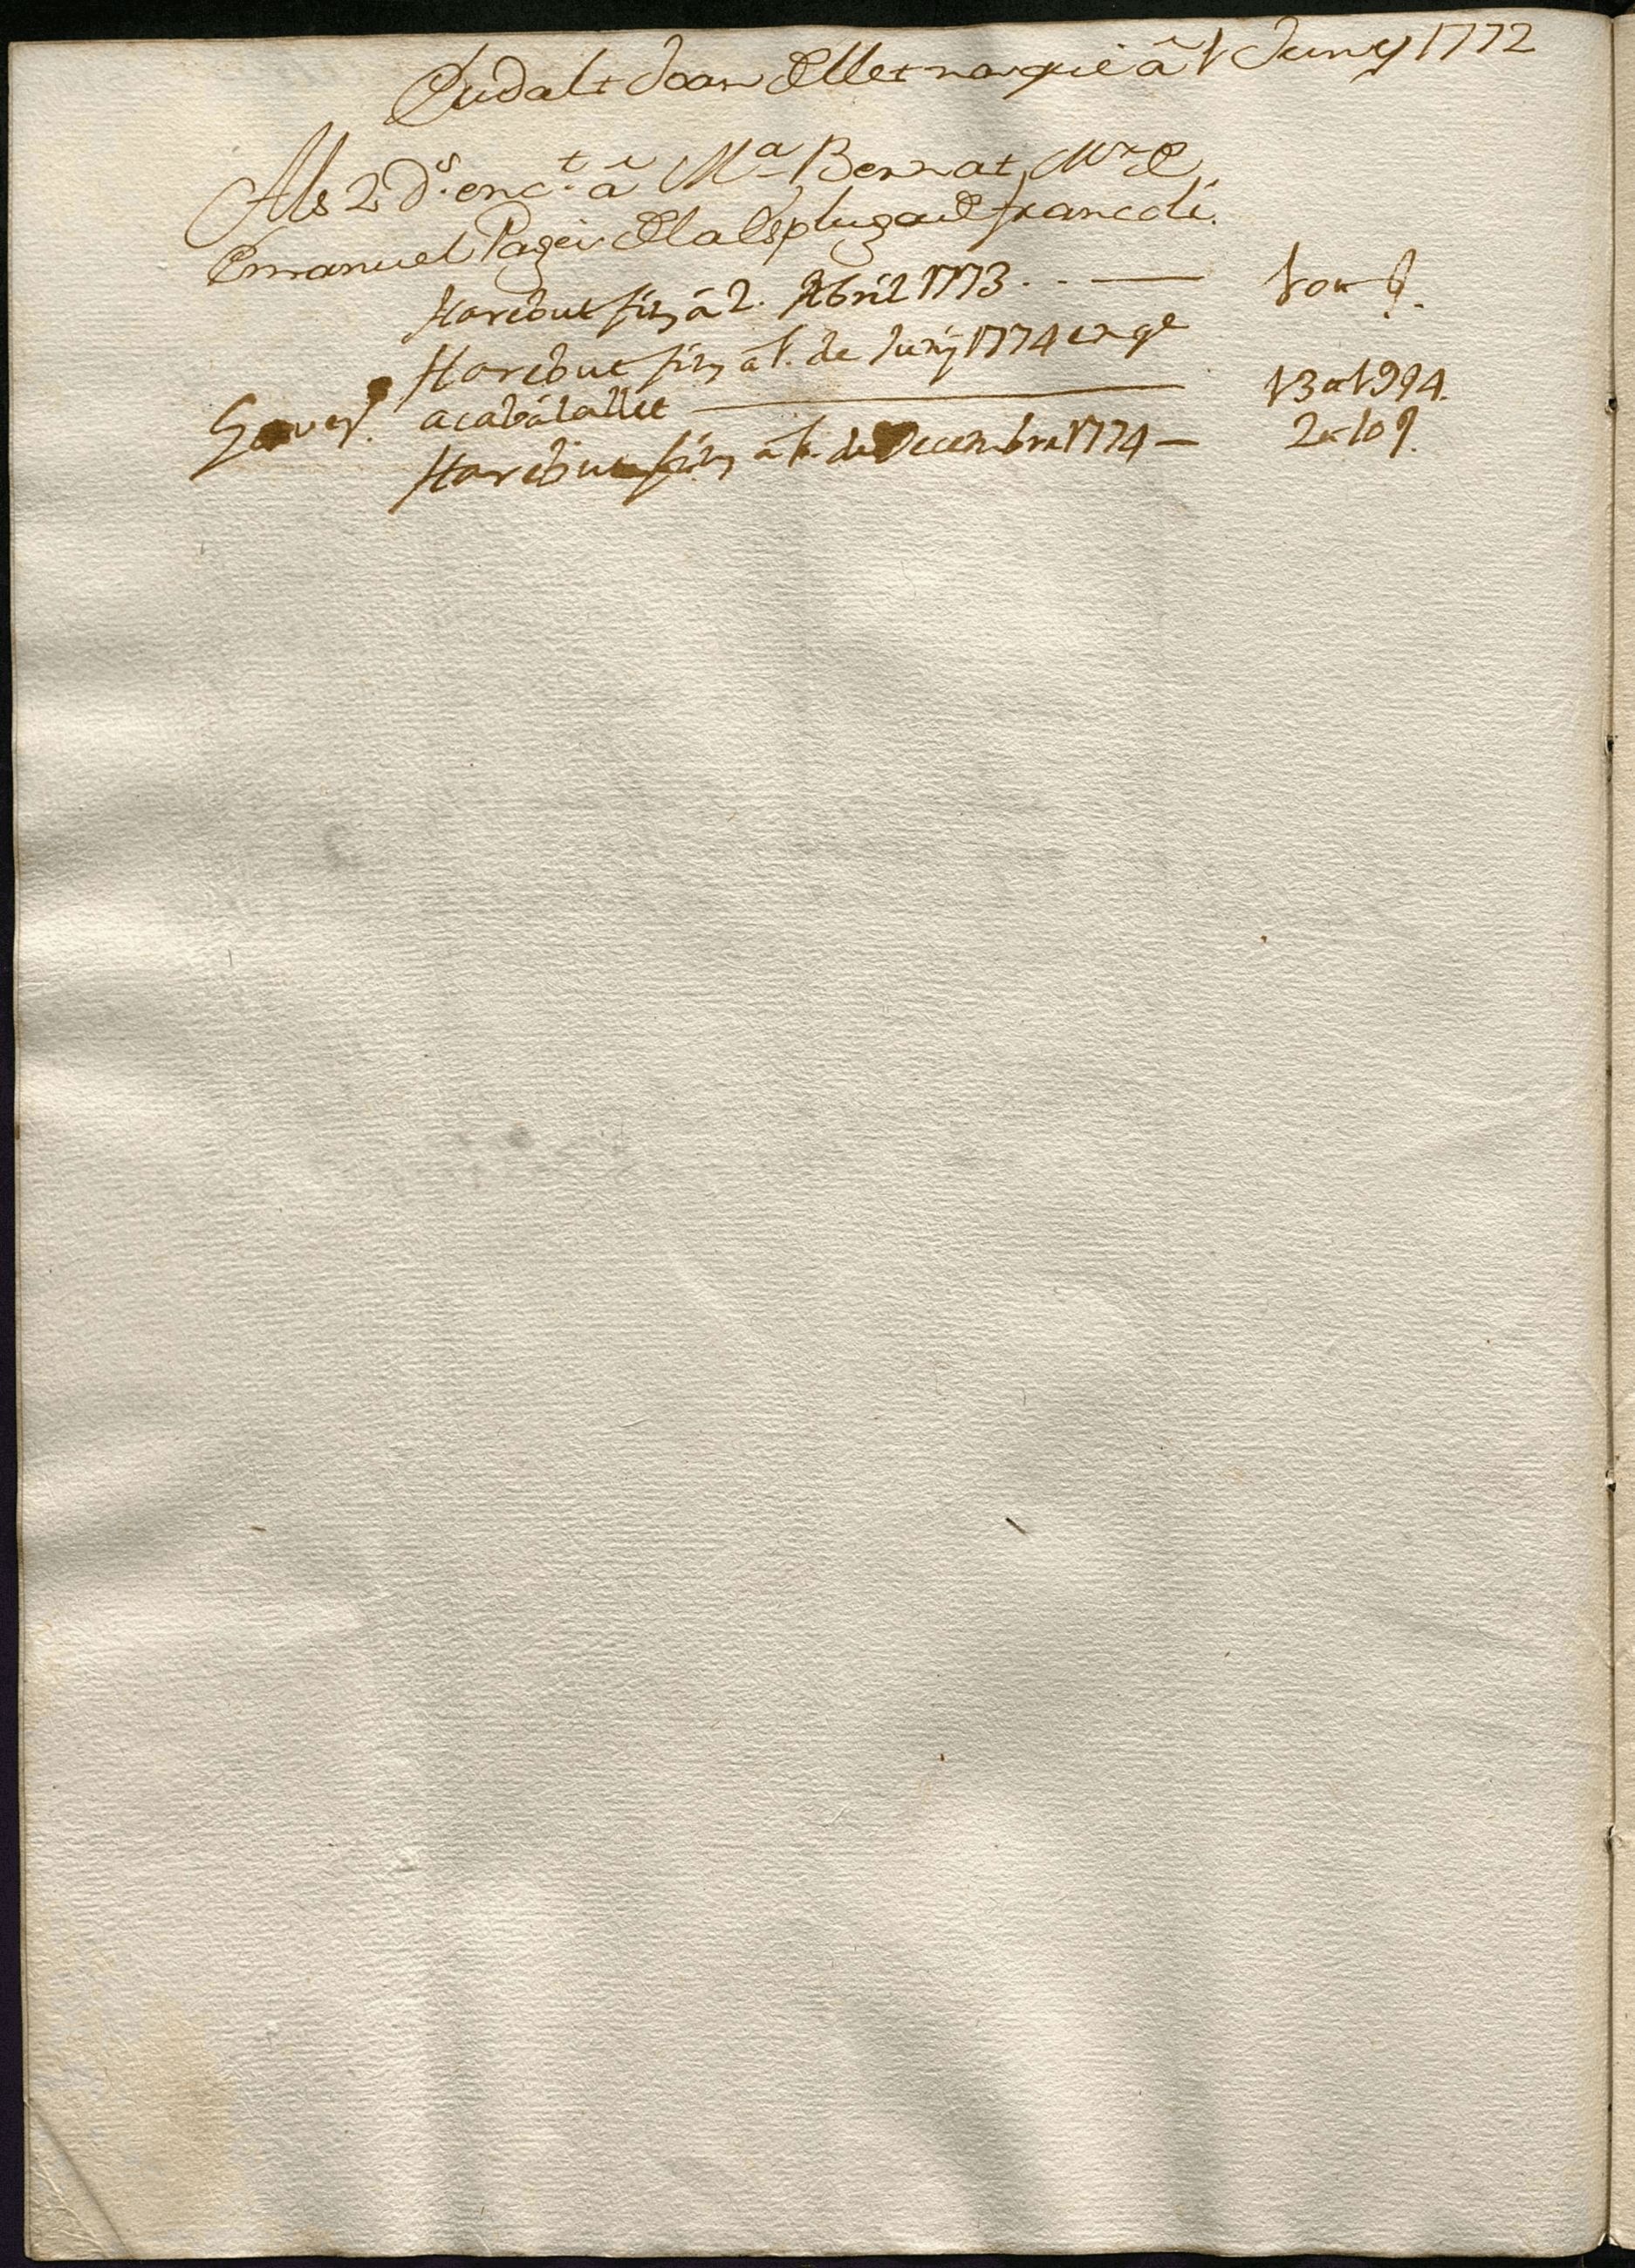 Eudalt Joan Ellet naxque â 1 Juny 1772
Als 2 ds. enct. â Ma Bernat, Mr. E
Emanuel Pagès E la Espluga E francoli.
Ha rebut fins â 2. Abril 1773. . —
Ha rebut fins â 1. de Juny 1774 en qe
acabâ la llet — 13 1994.
Ha rebut fins â 1. de Decembre 1774 — 2 10 9.